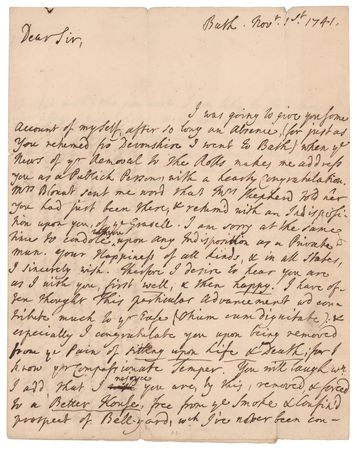 Bath. Nov.r 1.st 1741.
Dear Sir,
I was going to give you some
account of myself, after so long an absence, (for just as
You returned fro Devonshire I went to Bath) when ye
News of yr Removal to the Rolls makes me address
you as a Publick Person, with a hearty Congratulation.
Mrs Blount sent me word that Mrs Shepherd told her
You had just been there, & returnd with an Indisposi-
tion upon you, of a Gravell. I am sorry at the same
time to condole upon any Indisposition as a Private
man. Your Happiness of all kinds, & in all States,
I sincerely wish. Therefore I desire to hear you are
as I wish you, first well, & then happy. I have of-
ten thought this particular Advancement wd con-
tribute much to yr Ease (Otium cum dignitate) &
especially I congratulate you upon being removed
from ye Pain of sitting upon Life & Death, for I
know yr Compassionate Temper. You will laugh wn
I add, that I rejoyce you are, by this, removed & forced
to a Better House, free from ye Smoke & Confind
prospect of Bell-yard, wch I've never been con-